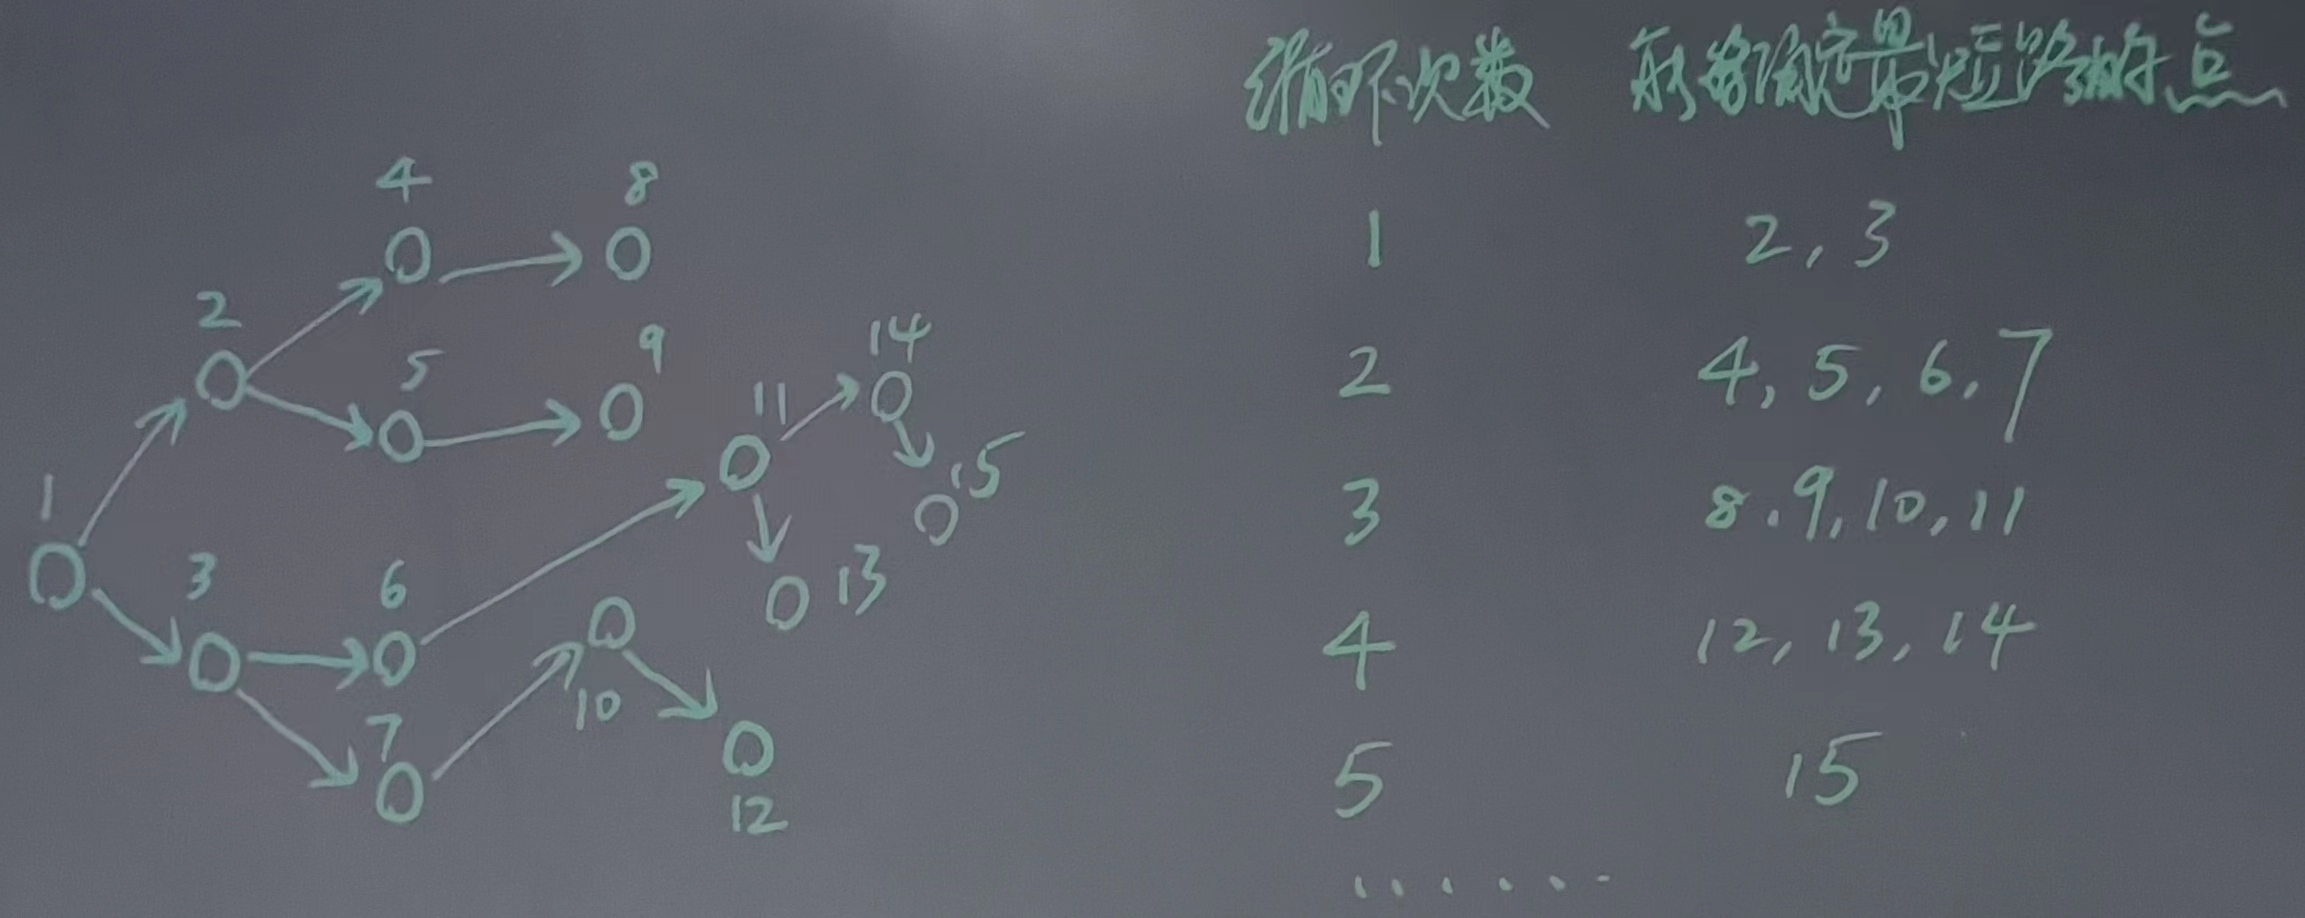 循环次数 能够确定最短路的点
1 2,3
2 4,5,6,7
3 8.9,10,11
4 12,13,14
5 15
......
4 8
2
5 9
14
11
15
1
3 6
13
7
10
12